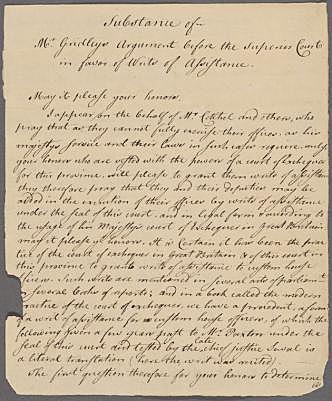 Substance of
Mr. Gridley's Argument before the Superior Court
in favor of Writs of Assistance.
May it please your honors.
I appear on the behalf of Mr. Cockle and others, who
pray that as they cannot fully exercise their offices, as his
majesty's service and their laws in such cases require, unless
your honors who are vested with the power of a court of exchequer
for this province will please to grant them writs of assistance
they therefore pray that they and their deputies may be
aided in the execution of their offices by writs of assistance
under the seal of this court, and in legal form & according to
the usage of his Majesty's court of exchequer in Great Britain.
may it please yr. honors. It is certain it has been the prac-
tice of the court of exchequer in Great Britain & of this court in
this province to grant writs of assistance to custom house
officers. Such writs are mentioned in several acts of parliament
in several books of reports; and in a book called the modern
practice of the court of exchequer, we have a precedent, a form
of a writ of assistance for custom house officers, of which the
following given a few years past to Mr. Paxton under the
seal of this court and tested by the late chief justice Sewal is
a literal translation (here the writ was recited)
The first question therefore for your honors to determine
is